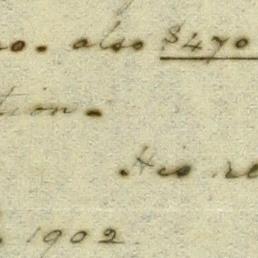 no. also $470
tion.
His re
1902